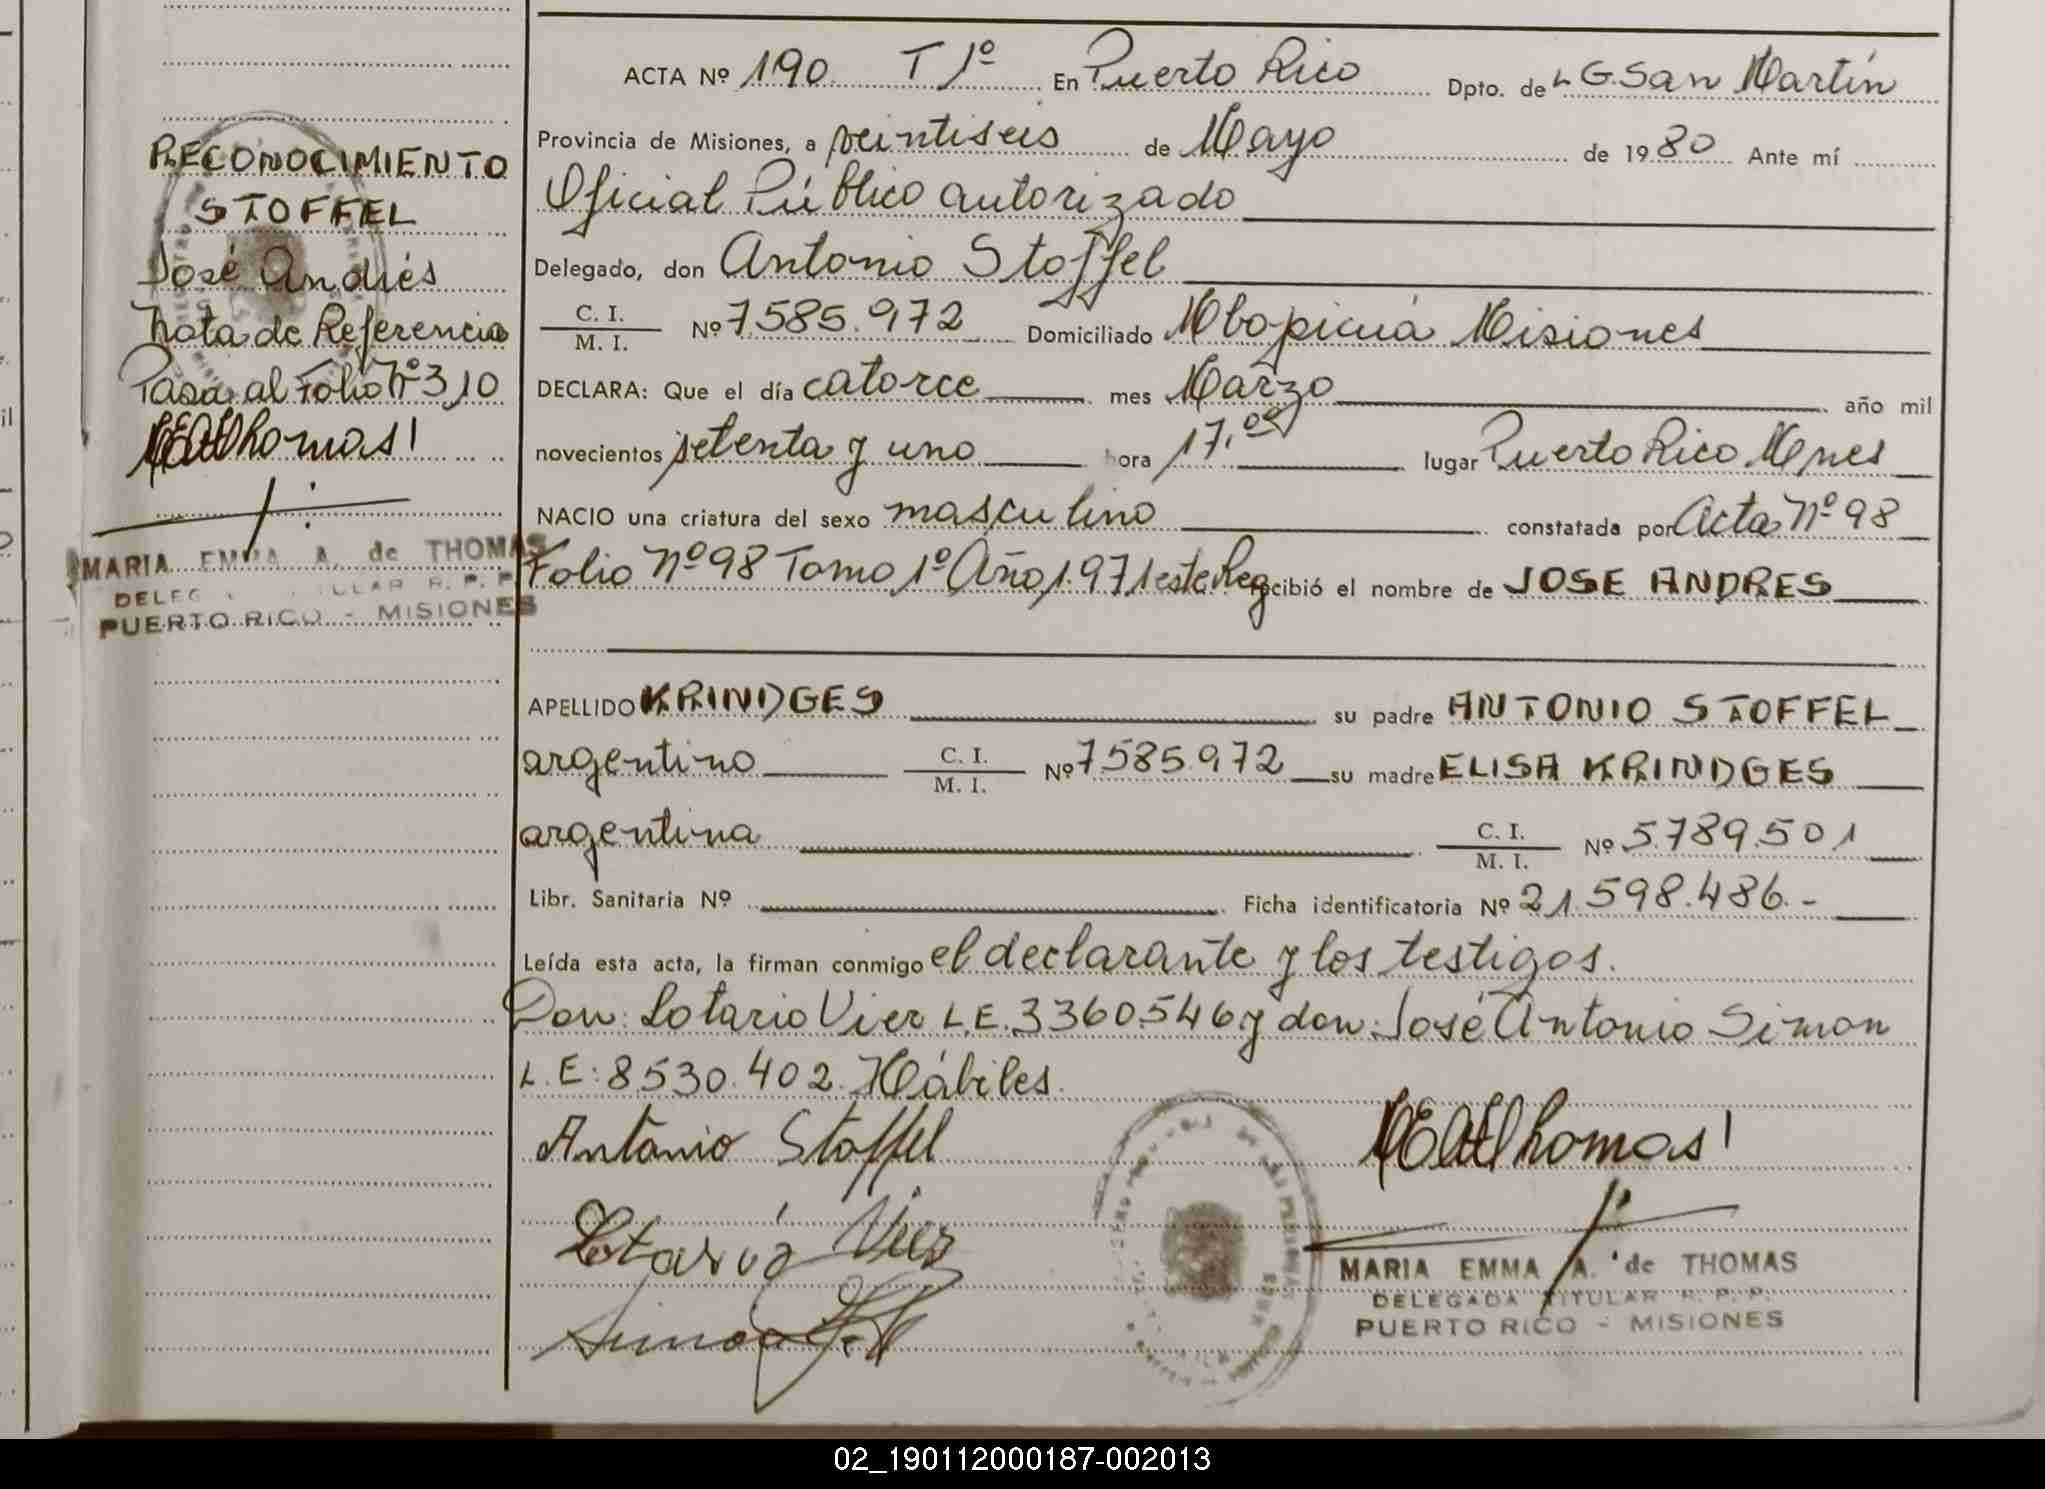 ACTA Nº 190 T 1º En Puerto Rico Dpto. de L G. San Martín
Provincia de Misiones, a veintiseis de Mayo de 1980 Ante mí
Oficial Público autorizado
Delegado, don Antonio Stoffel
C. I.
M. I.
Nº 7585.972 Domiciliado Mbopicuá Misiones
DECLARA: Que el día catorce mes Marzo año mil
novecientos setenta y uno hora 17,00 lugar Puerto Rico Mnes
NACIO una criatura del sexo masculino constatada por Acta Nº 98
Folio Nº 98 Tomo 1º Año 1.971 este Reg recibió el nombre de JOSE ANDRES
APELLIDO KRINDGES su padre ANTONIO STOFFEL
argentino C. I. M. I. Nº 7585.972 su madre ELISA KRINDGES
argentina C. I. M. I. Nº 5.789.501
Libr. Sanitaria Nº Ficha identificatoria Nº 21.598.486.-
Leída esta acta, la firman conmigo el declarante y los testigos.
Don: Lotario Vier L.E. 3360.546 y don: José Antonio Simon
L.E: 8.530.402. Hábiles.
Antonio Stoffel
Lotario Vier
Simon
MEAThomas
MARIA EMMA A. de THOMAS
DELEGADA TITULAR R. P. P.
PUERTO RICO - MISIONES
RECONOCIMIENTO
STOFFEL
José Andrés
Nota de Referencia
Pasa al Folio Nº 310
MEAThomas
MARIA EMMA A. de THOMAS
PUERTO RICO - MISIONES
02_190112000187-002013